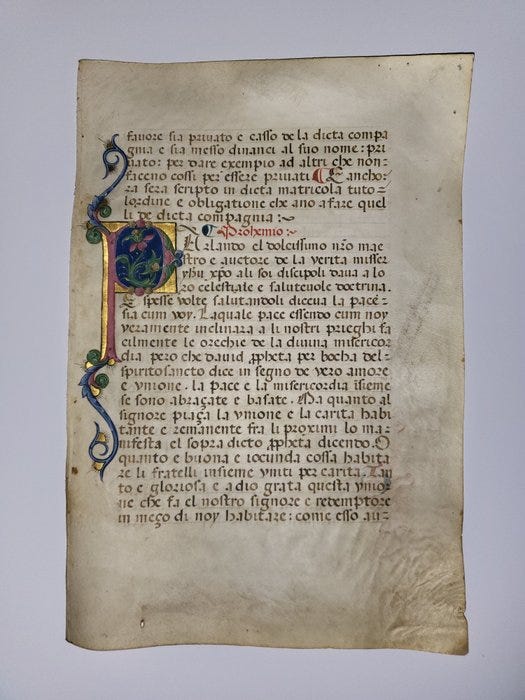 fauore sia priuato e casso de la dicta compa
gnia e sia messo dinanci al suo nome: pri
uato: per dare exempio ad altri che non-
faceno cossi per essere priuati ¶ E anchor
ra sera scripto in dicta matricola tuto-
lordine e obligatione che ano a fare quel
li de dicta compagnia:~
¶ Prohemio:~
PArlando el dolcissimo nro mae
stro e auctore de la verita misser
yhu xpo ali soi discipoli daua a lo
ro celestiale e saluteuole doctrina.
E spesse volte salutandoli diceua la pace-
sia cum voy. Laquale pace essendo cum noy
veramente inclinara a li nostri prieghi fa
cilmente le orechie de la diuina misericor
dia pero che dauid ppheta per bocha del-
spirito sancto dice in segno de vero amore
e vnione. la pace e la misericordia isieme
se sono abraçate e basate. Ma quanto al
signore piaça la vnione e la carita habi
tante e remanente fra li proximi lo ma-
nifesta el sopra dicto ppheta dicendo. O
quanto e buona e iocunda cossa habita
re li fratelli insieme vniti per carita. Tan
to e gloriosa e a dio grata questa vnio
ne che fa el nostro signore e redemptore
in meço di noy habitare: come esso au-